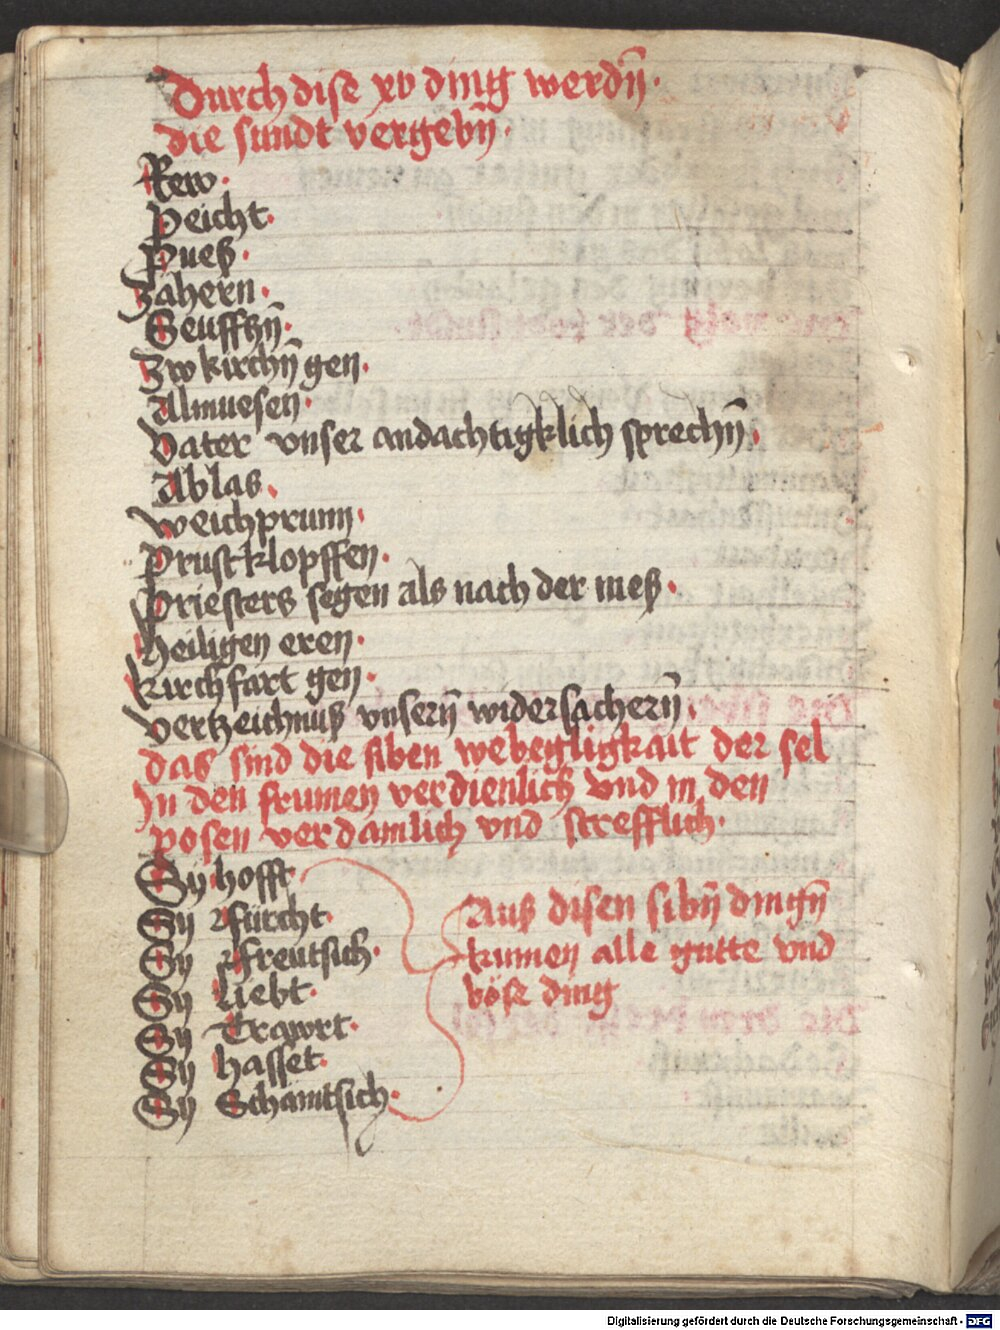 Durch dise xv ding werdn̄.
die sundt vergebn̄.
Rew.
Peicht.
Pueß.
Zähern.
Seufftzn̄.
Zw kirchn̄ gen.
Almuesen.
Vater vnser andachtigklich sprechn̄.
Ablas.
Weichprunn.
Prustklopffen.
Priesters segen als nach der meß.
Heiligen eren.
Kirchfart gen.
Vertzeichnuß vnsern̄ widersachern̄.
das sind die siben webegligkait der sel
In den frumen verdienlich vnd in den
posen verdamlich vnd strefflich.
Sy hofft.
Sy fürcht.
Sy freutsich.
Sy Liebt.
Sy Trawrt.
Sy hasset.
Sy Schämtsich.
Auß disen sibn̄ dingn̄
kumen alle gutte vnd
böse ding
Digitalisierung gefördert durch die Deutsche Forschungsgemeinschaft - DFG